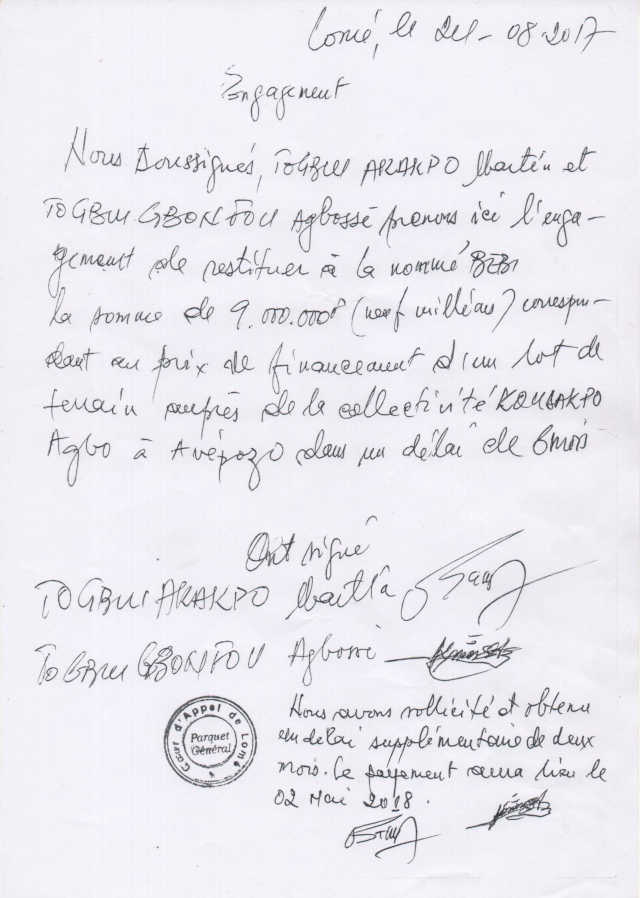 Lomé, le 21-08-2017
Engagement
Nous soussignés, TOGBUI AKAKPO Martin et
TOGBUI GBONFOU Agbossé prenons ici l'enga-
gement de restituer à la nommé BEBI
la somme de 9.000.000F (neuf millions) correspon-
dant au prix de financement d'un lot de
terrain auprès de la collectivité KOUSAKPO
Agbo à Avépozo dans un délai de 6 mois
Ont signé
TOGBUI AKAKPO Martin
TOGBUI GBONFOU Agbossé
Cour d'Appel de Lomé
Parquet
Général
Nous avons sollicité et obtenu
un délai supplémentaire de deux
mois. Le payement aura lieu le
02 Mai 2018.